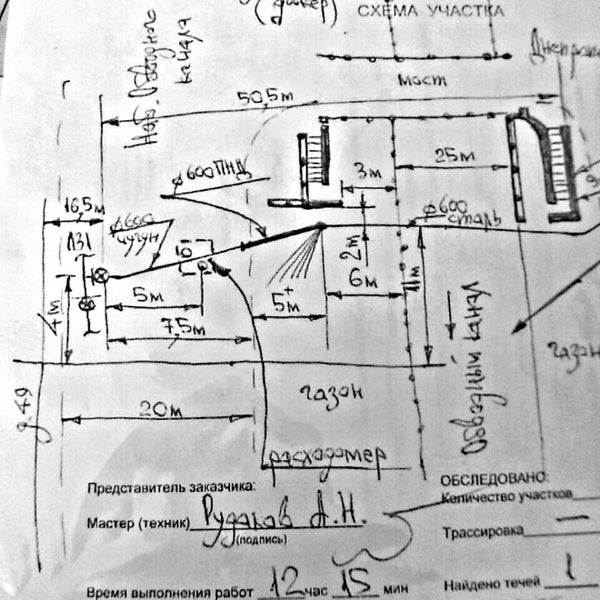 (дюкер)
СХЕМА УЧАСТКА
Наб. Обводного
канала
мост
50,5м
ø600ПНД
3м
25м
16,5м
ø600
чугун
ø600
сталь
2м
6м
11м
4м
5м
7,5м
5м
20м
газон
газон
Обводный канал
расходомер
д.49
Представитель заказчика:
ОБСЛЕДОВАНО:
Количество участков
Мастер (техник) Рудаков А.Н.
(подпись)
Трассировка —
Время выполнения работ 12 час 15 мин
Найдено течей 1